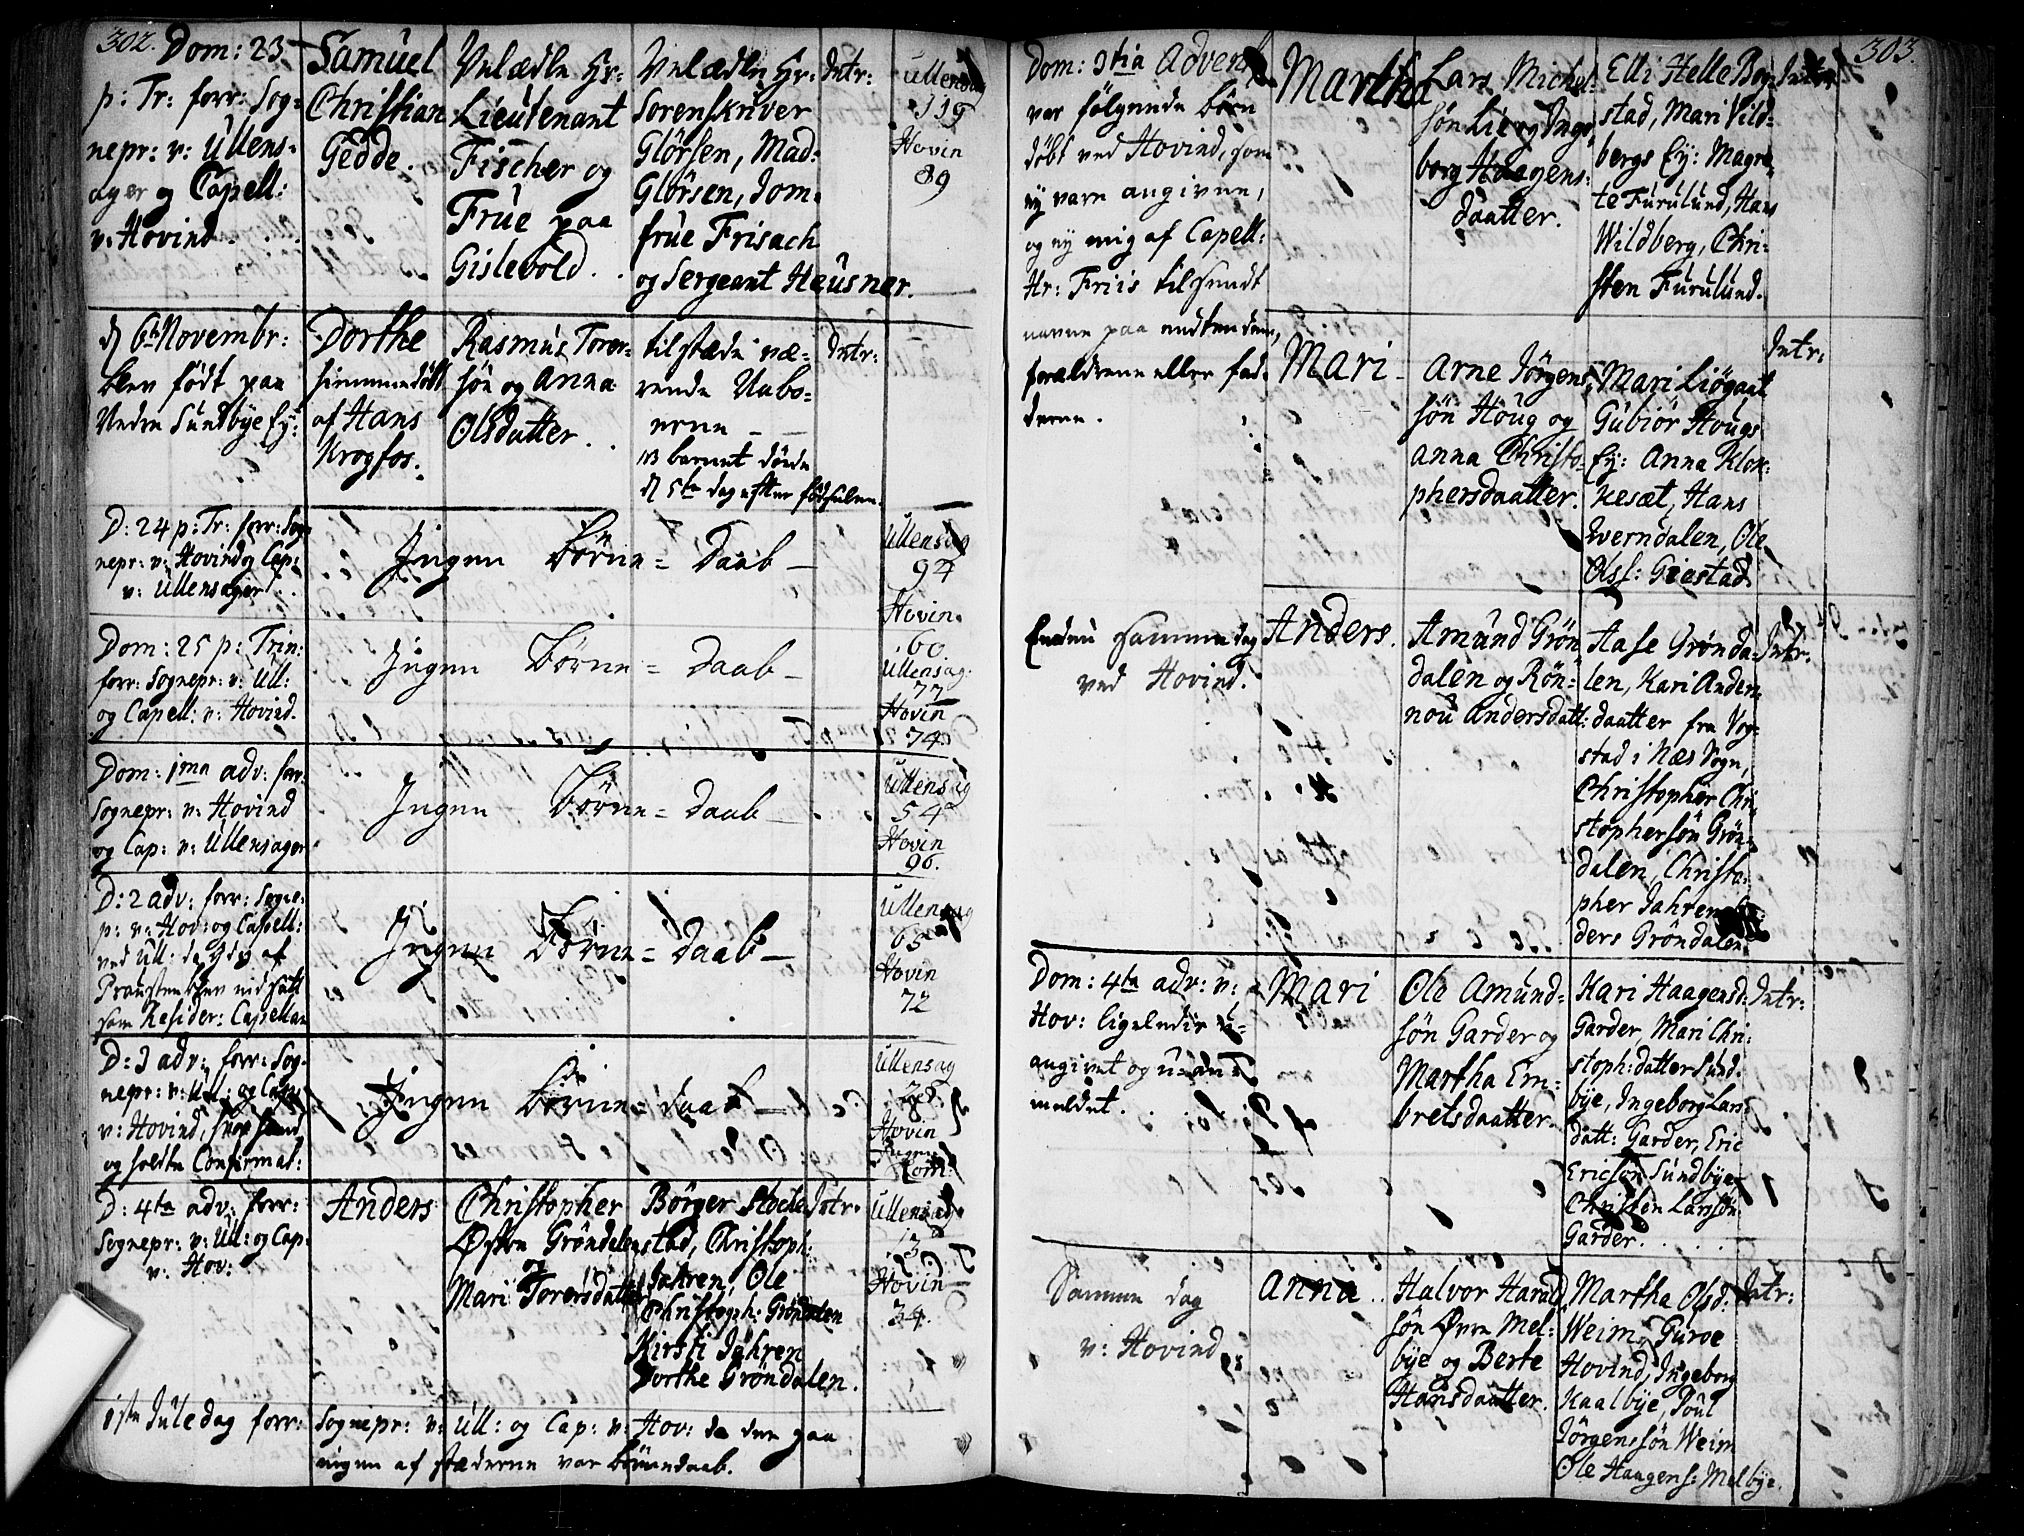 302.
Dom: 23
p: Tr: forr: Sog=
nepr: v: Ullens=
ager og Capell:
v: Hovind.
Samuel
Christian
Gedde.
Velædle Hr:
Lieutenant
Fischer og
Frue paa
Gislevold.
Velædle Hr:
Sorenskriver
Glörsen, Mad:
Glörsen, Jom=
frue Frisach
og Sergeant Heusner.
Intr:
Ullensag
119
Hovin
89
d 6te Novembr:
blev födt paa
Nedre Sundbye Ey:
Dorthe
himmedöbt
af Hans
Krogfos.
Rasmus Torer=
sön og Anna
Olsdatter.
tilstæde væ=
rende Nabo=
erne
NB barnet döde
d 5te dag efter födselen.
Intr:
D: 24 p: Tr: forr: Sog
nepr: v: Hovind og Cap:
v: Ullensager
Ingen Börne = Daab
Ullensag
94
Hovin
60
Dom: 25 p: Trin:
forr: Sognepr: v: Ull:
og Capell: v: Hovind.
Ingen Börne = Daab
Ullensag:
77
Hovin
74
Dom: 1ma adv: forr:
Sognepr: v: Hovind
og Cap: v: Ullensager
Ingen Börne = Daab
Ullensag
54
Hovin
96.
D: 2 adv: forr: Sogne=
p: v: Hov: og Capell:
ved Ull: da h af
Prousten blev indsatt
som Resider: Capellan
Ingen Börne = Daab
Ullensag
65
Hovin
72
D: 3 adv: forr: Sog=
nepr: v: Ull: og Cap:
v: Hovind,
og holdte Confirmat:
Ingen Börne = Daab
Ullensag
28
Hovin
Ingen
Com:
D: 4ta adv: forr:
Sognepr: v: Ull: og Cap:
v: Hov:
Anders
Christopher
Östre Gröndalen
og
Mari Torersdatter
Börger Stocke
stad, Christoph:
Jahren, Ole
Christoph: Gröndalen
Kirsti Jahren
Dorthe Gröndalen.
Intr.
Ullensag
13
Hovin
34.
1ste Juledag forr: Sognepr: v: Ull: og Cap: v: Hov: da der paa
ingen af stæderne var börnedaab.
303.
Dom: 3tia Advent
var fölgende börn
döbt ved Hovind, som
ey vare angivne,
og ey mig af Capell:
Hr: Friis tilsendt
navne paa endten dem,
forældrene eller fad=
derne.
Martha
Lars Michel=
sön Lie og Inge
borg Haagens=
daatter.
Elli Helle Bog
stad, Mari Vild=
bergs Ey: Magre=
te Furulund, Hans
Wildberg, Chri=
sten Furulund.
Intr:
Mari
Arne Jörgens
sön Houg og
Anna Christo=
phersdaatter.
Mari Liögaat
Gubiör Hougs
Ey: Anna Klok=
kesæt, Hans
Qverndalen, Ole
Olss: Giestad
Intr:
Endnu samme dag
ved Hovind.
Anders.
Amund Grön
dalen og Rön=
nou Andersdatt:
Aase Grönda=
len, Kari Anders
daatter fra Vog=
stad i Næs Sogn,
Christopher Chri
stophersön Grön=
dalen, Christo=
pher Jahren
ders Gröndalen
Intr:
Dom: 4ta adv: v:
Hov: ligeledis u=
angivet og u=an=
meldet.
Mari
Ole Amund=
sön Garder og
Martha Em=
bretsdaatter.
Kari Haagensd:
Garder, Mari Chri=
stoph: datter Sund=
bye, Ingeborg Lars
datt: Garder, Eric
Ericsön Sundbye
Christen Larssön
Garder.
Intr:
Samme dag
v: Hovind
Anna.
Halvor Harald
sön Övre Mel=
bye og Berte
Hansdaatter.
Martha Olsd:
Weim, Gurve
Hovind, Ingeborg
Kaalbye, Poul
Jörgenssön Weim
Ole Haagens: Melbye.
Intr: